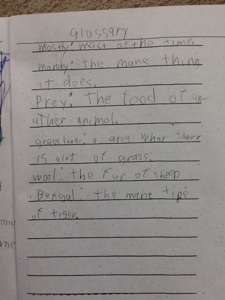 glossary
mostly: most of the time.
manely: the mane thing
it does.
Prey: the food of an
uther animal.
grassland: a area whar there
is alot of grass.
wool: the fur of sheep
Bengal: the mane tipe
of tiger.